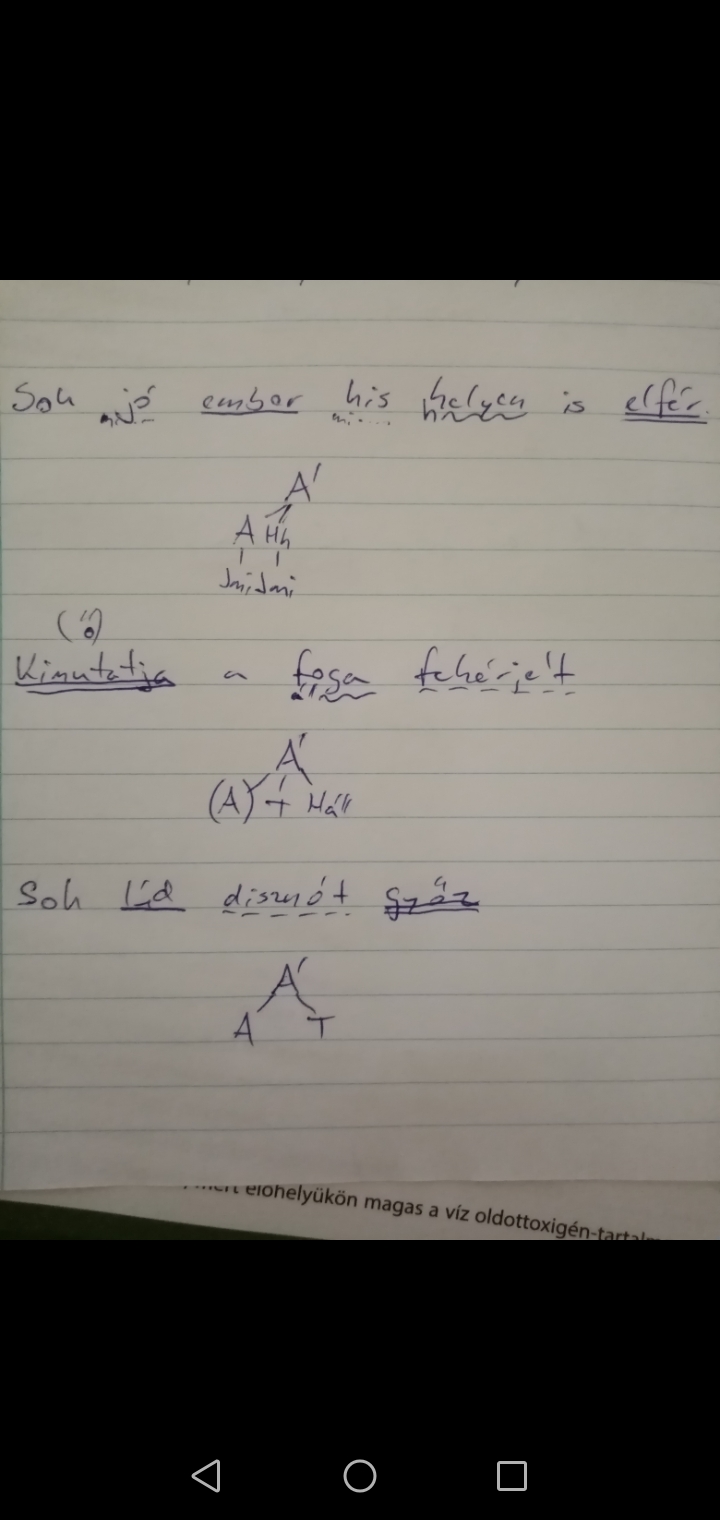 Sok jó ember kis helyen is elfér.
Á
A Hh
Jmi Jmi
(ő)
Kimutatja a foga fehérjét
Á
(A) T Háll
Sok lúd disznót győz
Á
A T
mert élőhelyükön magas a víz oldottoxigén-tartalm